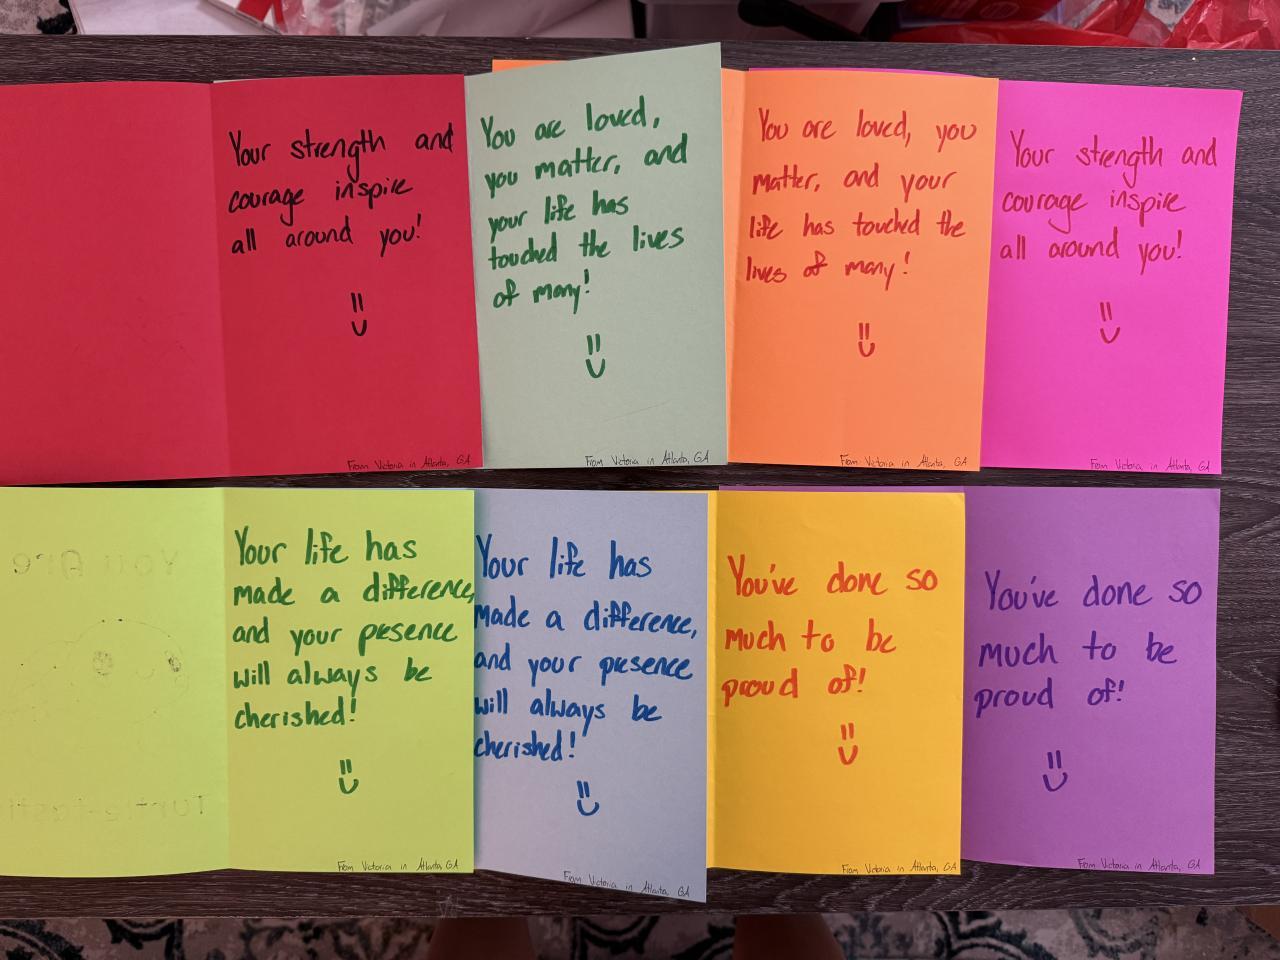 Your strength and
courage inspire
all around you!
From Victoria in Atlanta, GA
You are loved,
you matter, and
your life has
touched the lives
of many!
From Victoria in Atlanta, GA
You are loved, you
matter, and your
life has touched the
lives of many!
From Victoria in Atlanta, GA
Your strength and
courage inspire
all around you!
From Victoria in Atlanta, GA
You Are
Turtle-tasti
Your life has
made a difference,
and your presence
will always be
cherished!
From Victoria in Atlanta, GA
Your life has
made a difference,
and your presence
will always be
cherished!
From Victoria in Atlanta, GA
You've done so
much to be
proud of!
From Victoria in Atlanta, GA
You've done so
much to be
proud of!
From Victoria in Atlanta, GA